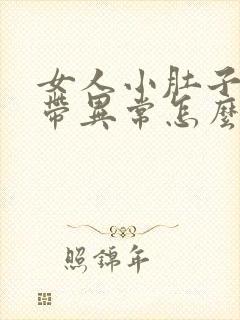 女人小肚子
帶異常怎麼
照錦年